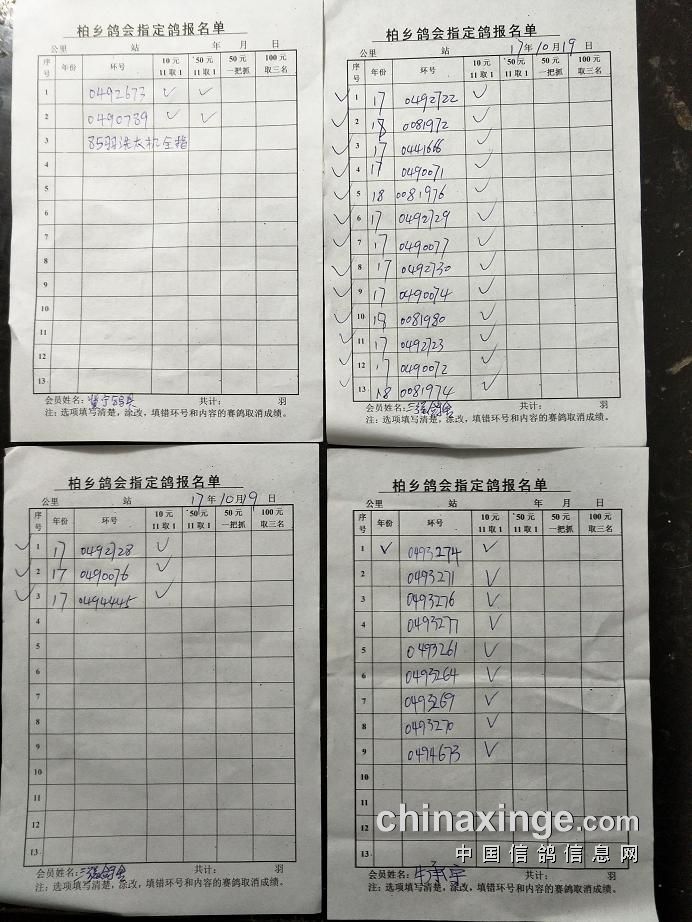 柏乡鸽会指定鸽报名单
公里 站 年 月 日
序号 年份 环号 10元 11取1 50元 11取1 50元 一把抓 100元 取三名
1 0492673 ✓ ✓
2 0490789 ✓ ✓
3 85羽洗衣机全指
4
5
6
7
8
9
10
11
12
13
会员姓名: 共计: 羽
注:选项填写清楚,涂改,填错环号和内容的赛鸽取消成绩。
柏乡鸽会指定鸽报名单
公里 站 17年10月19日
序号 年份 环号 10元 11取1 50元 11取1 50元 一把抓 100元 取三名
✓ 1 17 0492722 ✓
✓ 2 18 0081972 ✓
✓ 3 17 0441666 ✓
✓ 4 17 0490071 ✓
✓ 5 18 0081976 ✓
✓ 6 17 0492729 ✓
✓ 7 17 0490077 ✓
✓ 8 17 0492730 ✓
✓ 9 17 0490074 ✓
✓ 10 18 0081980 ✓
✓ 11 17 0492723 ✓
✓ 12 17 0490072 ✓
✓ 13 18 0081974 ✓
会员姓名:三强鸽舍 共计: 羽
注:选项填写清楚,涂改,填错环号和内容的赛鸽取消成绩。
柏乡鸽会指定鸽报名单
公里 站 17年10月19日
序号 年份 环号 10元 11取1 50元 11取1 50元 一把抓 100元 取三名
✓ 1 17 0492728 ✓
✓ 2 17 0490076 ✓
✓ 3 17 0494445 ✓
4
5
6
7
8
9
10
11
12
13
会员姓名:三强鸽舍 共计: 羽
注:选项填写清楚,涂改,填错环号和内容的赛鸽取消成绩。
柏乡鸽会指定鸽报名单
公里 站 年 月 日
序号 年份 环号 10元 11取1 50元 11取1 50元 一把抓 100元 取三名
1 ✓ 0493274 ✓
2 0493271 ✓
3 0493276 ✓
4 0493277 ✓
5 0493261 ✓
6 0493264 ✓
7 0493269 ✓
8 0493270 ✓
9 0494673 ✓
10
11
12
13
会员姓名: 共计: 羽
注:选项填写清楚,涂改,填错环号和内容的赛鸽取消成绩。
chinaxinge.com
中国信鸽信息网